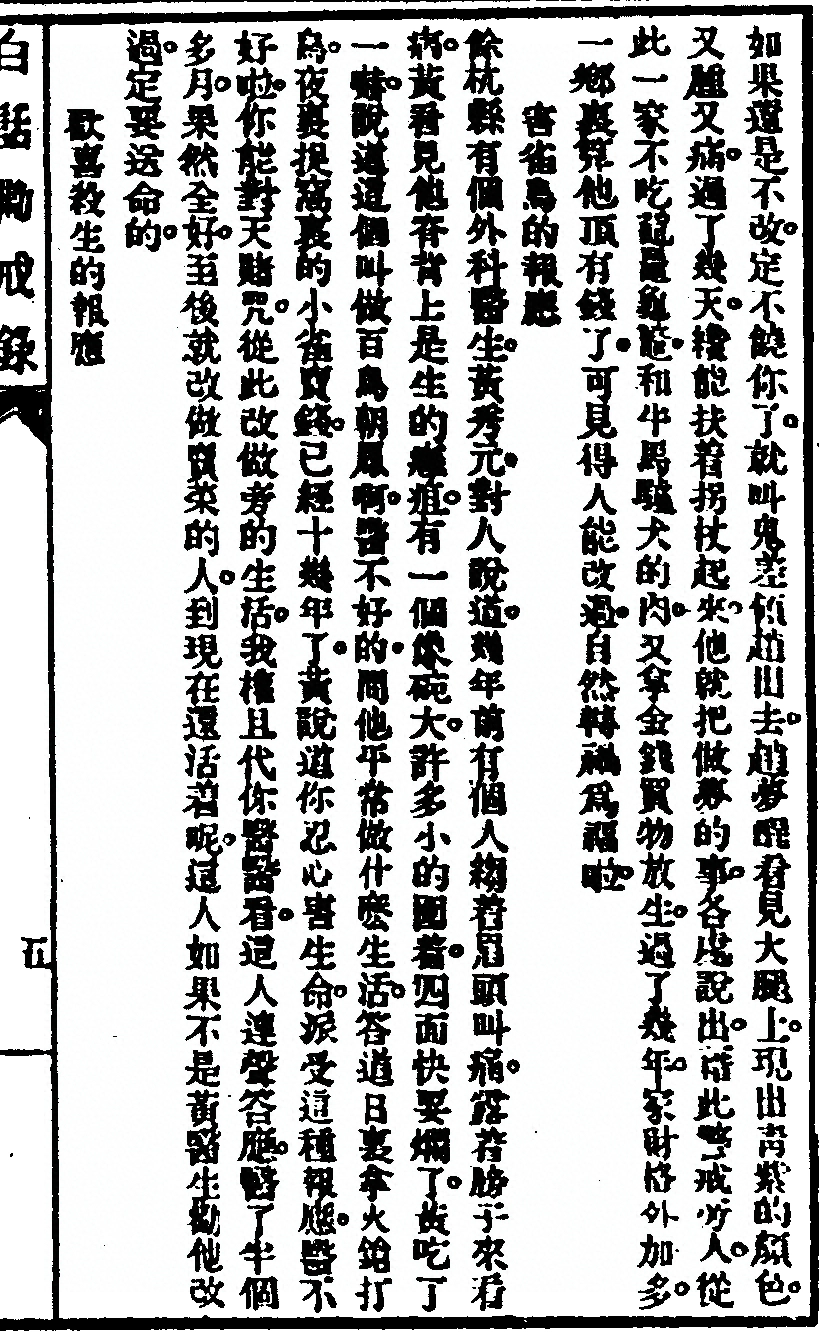 如果還是不改。定不饒你了。就叫鬼差趕出去。夢醒看見大腿上。現出青紫的顏色。
又腫又病。過了幾天。纔能扶着拐杖起來。他就把做夢的事。各處說出。藉此警戒旁人。從
此一家不吃黿鼉龜鼈。和牛馬驢犬的肉。又拿金錢買物放生。過了幾年。家財格外加多。
一鄉裏算他頂有錢了。可見得人能改過。自然轉禍爲福啦。
害雀鳥的報應
餘杭縣有個外科醫生。黃秀元。對人說道。幾年前有個人縐着眉頭叫痛。露着膀子來看
病。黃看見他脊背上是生的癰疽。有一個像碗大。許多小的圍着。四面快要爛了。黃吃了
一嚇。說道這個叫做百鳥朝鳳啊。醫不好的。問他平常做什麽生活。答道日裏拿火鎗打
鳥。夜裏捉窩裏的小雀賣錢。已經十幾年了。黃說道你忍心害生命。派受這種報應。醫不
好啦。你能對天賭咒。從此改做旁的生活。我權且代你醫醫看。這人連聲答應。醫了半個
多月。果然全好。至後就改做賣菜的人。到現在還活着呢。這人如果不是黃醫生勸他改
過。定要送命的。
歡喜殺生的報應
白話勸戒錄
五